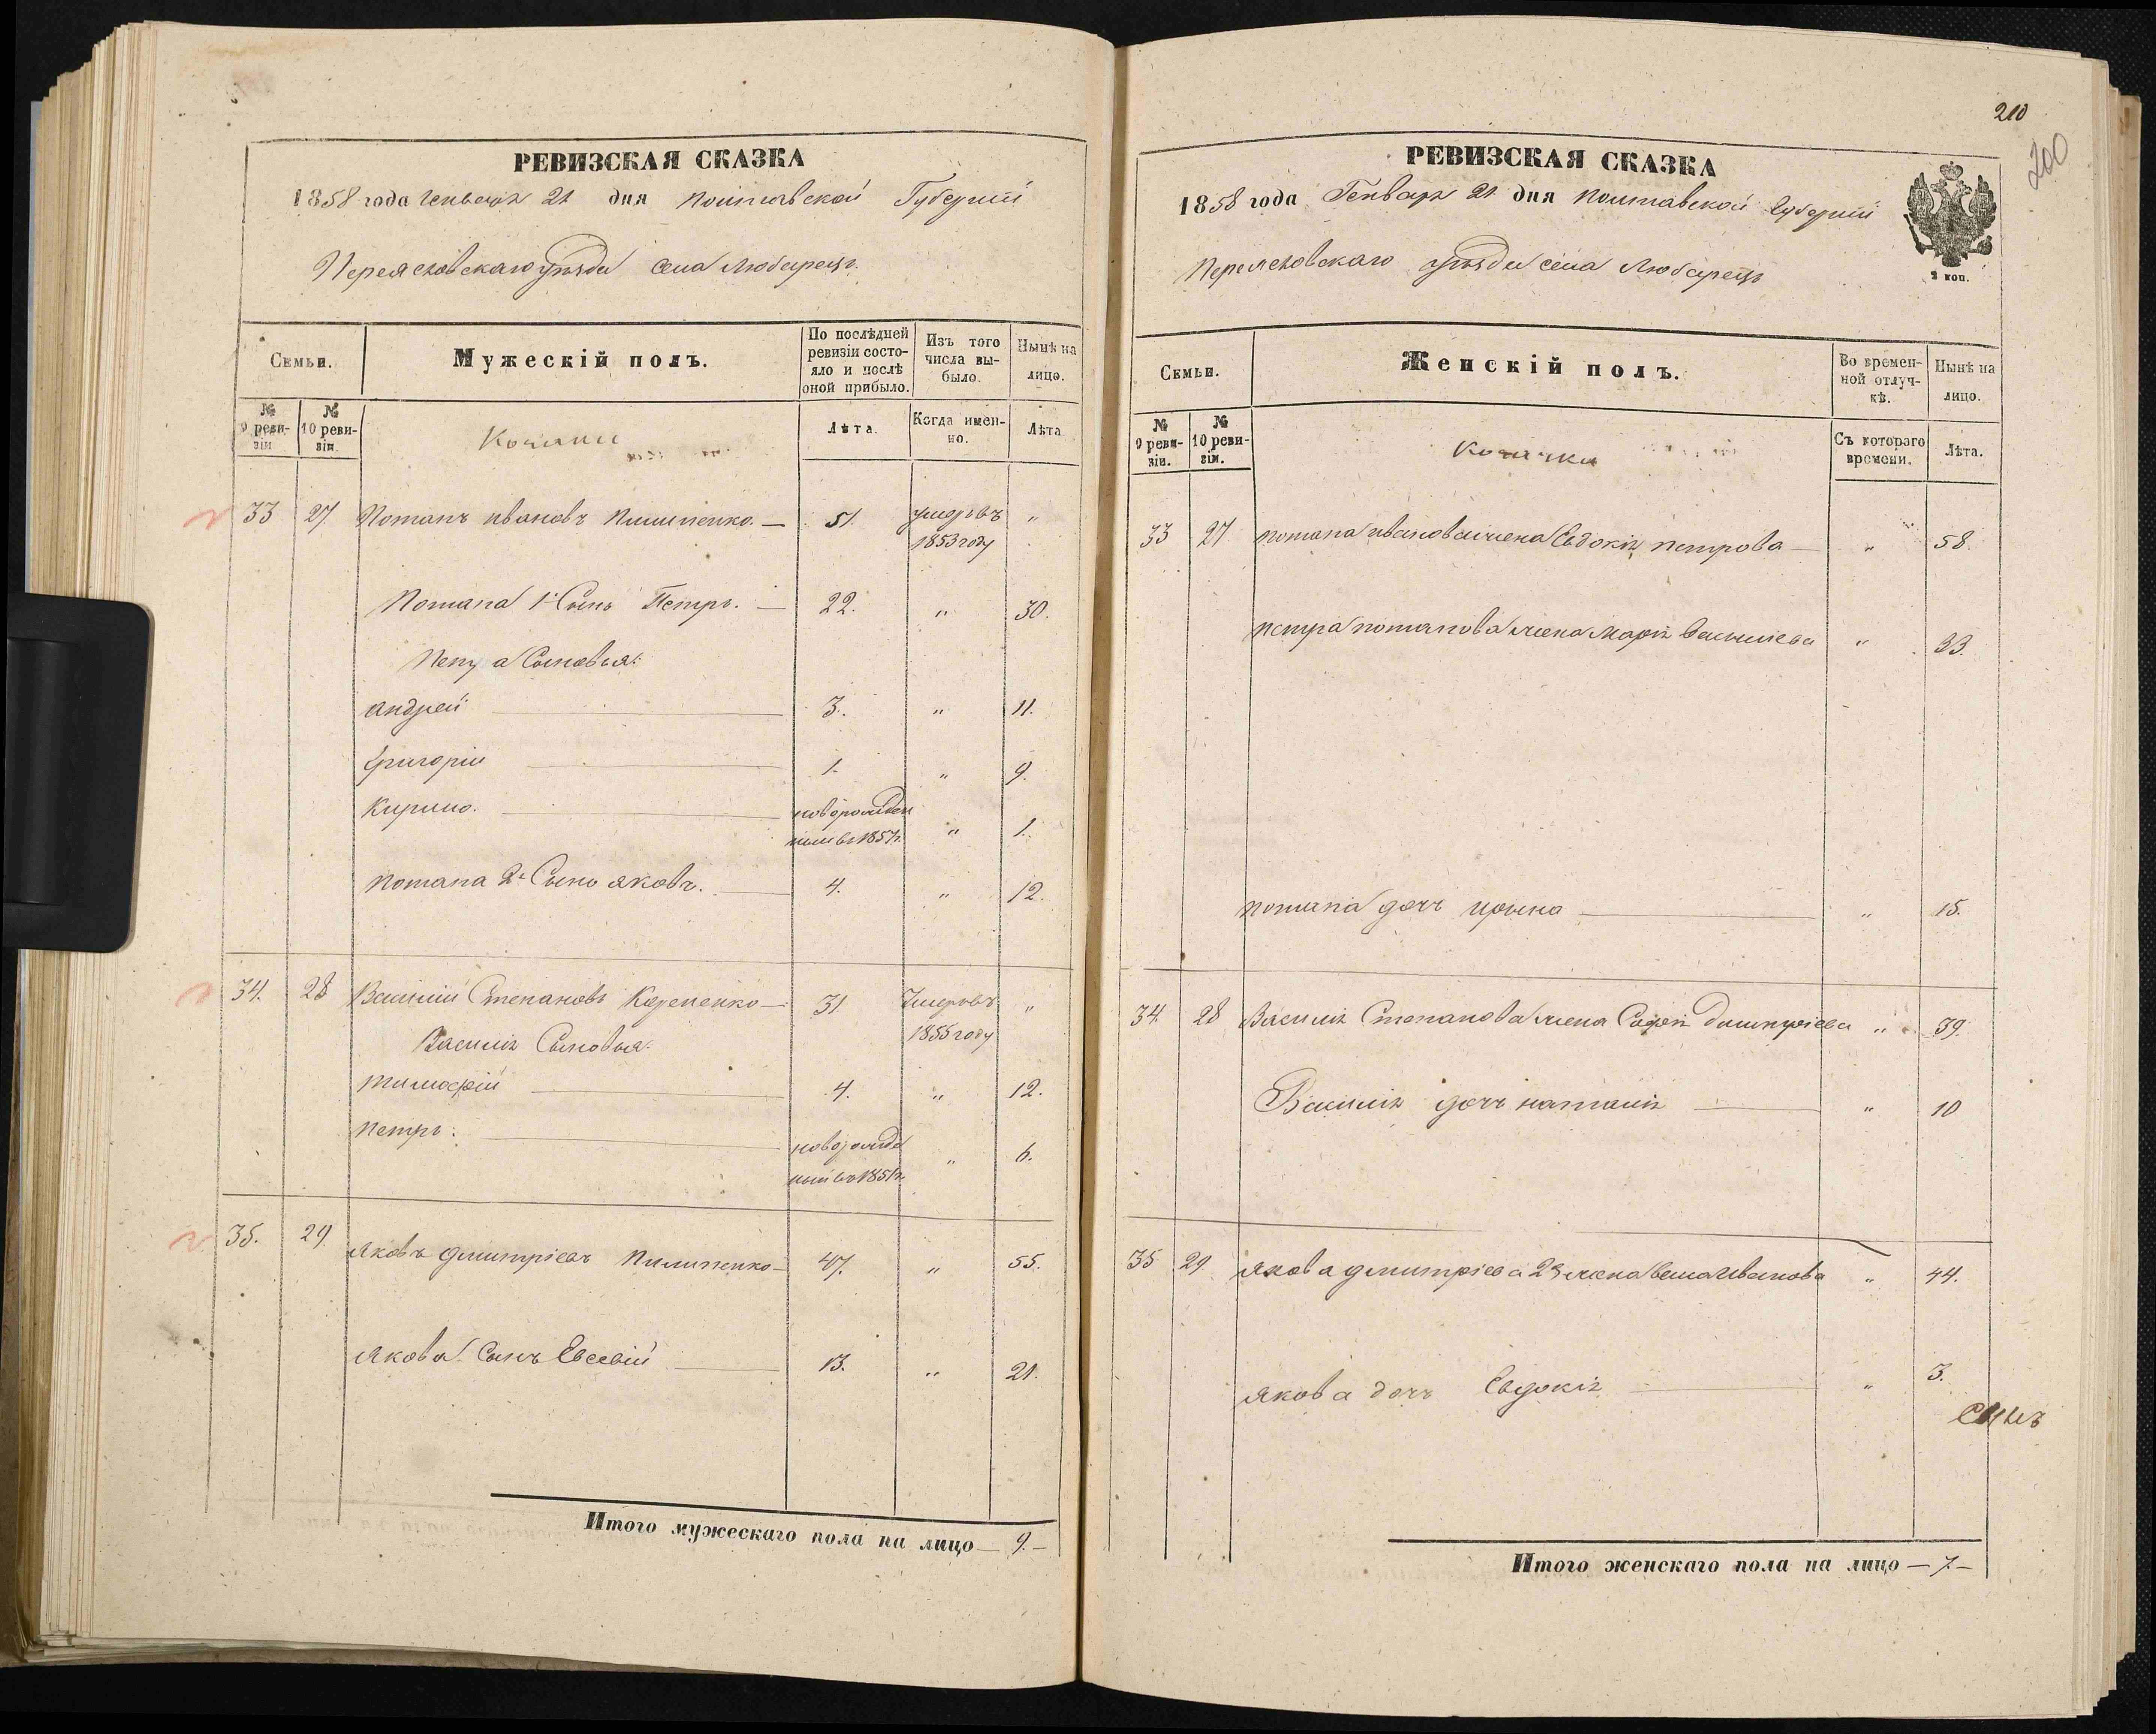 РЕВИЗСКАЯ СКАЗКА
1858 года Генваря 21 дня Полтавской Губерніи
Переясловскаго уѣзда села Любарецъ.
Семьи.
Мужескій полъ.
По послѣдней ревизіи состояло и послѣ оной прибыло.
Изъ того числа выбыло.
Нынѣ на лицо.
№ 9 ревизіи
№ 10 ревизіи.
Козаки
Лѣта.
Когда именно.
Лѣта
33 27 Потапъ Ивановъ Пилипенко. — 51. умеръ въ „
1853 году
Потапа 1й Сынъ Петръ. — 22. „ 30.
Петра Сыновья:
Андрей — 3. „ 11.
Григорій — 1. „ 9.
Кирило. — новорожден
ный въ 1857г. „ 1.
Потапа 2й Сынъ Яковъ. — 4. „ 12.
34. 28 Василій Степановъ — 31 Умеръ въ „
1855 году
Василія Сыновья:
Тимофѣй — 4. „ 12.
Петръ. — новорожде
ный въ 1851г. „ 6.
35. 29. Яковъ Дмитріевъ Пилипенко — 47. „ 55.
Якова Сынъ Евсевій — 13. „ 21.
Итого мужескаго пола на лицо — 9. —
210
200
РЕВИЗСКАЯ СКАЗКА
1858 года Генваря 21 дня Полтавской Губерніи
Переясловскаго уѣзда села Любарецъ
2 коп.
Семьи.
Женскій полъ.
Во временной отлучкѣ.
Нынѣ на лицо.
№ 9 ревизіи.
№ 10 ревизіи.
Козачки
Съ котораго времени.
Лѣта.
33 27 Потапа Иванова жена Евдокія Петрова — „ 58.
Петра Потапова жена Марія Васильева „ 33.
Потапа дочь Ирына — „ 15.
34 28 Василія Степанова жена Софія Дмитріева „ 39.
Василія дочь Наталія — „ 10
35 29 Якова Дмитріева 2я жена Ивановa „ 44.
Якова дочь Евдокія — „ 3.
Сынъ
Итого женскаго пола на лицо — 7 —